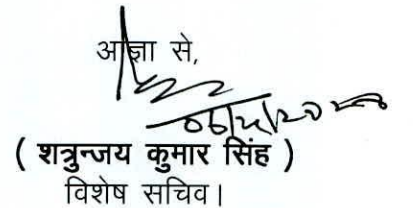 आज्ञा से,
( शत्रुन्जय कुमार सिंह )
विशेष सचिव।